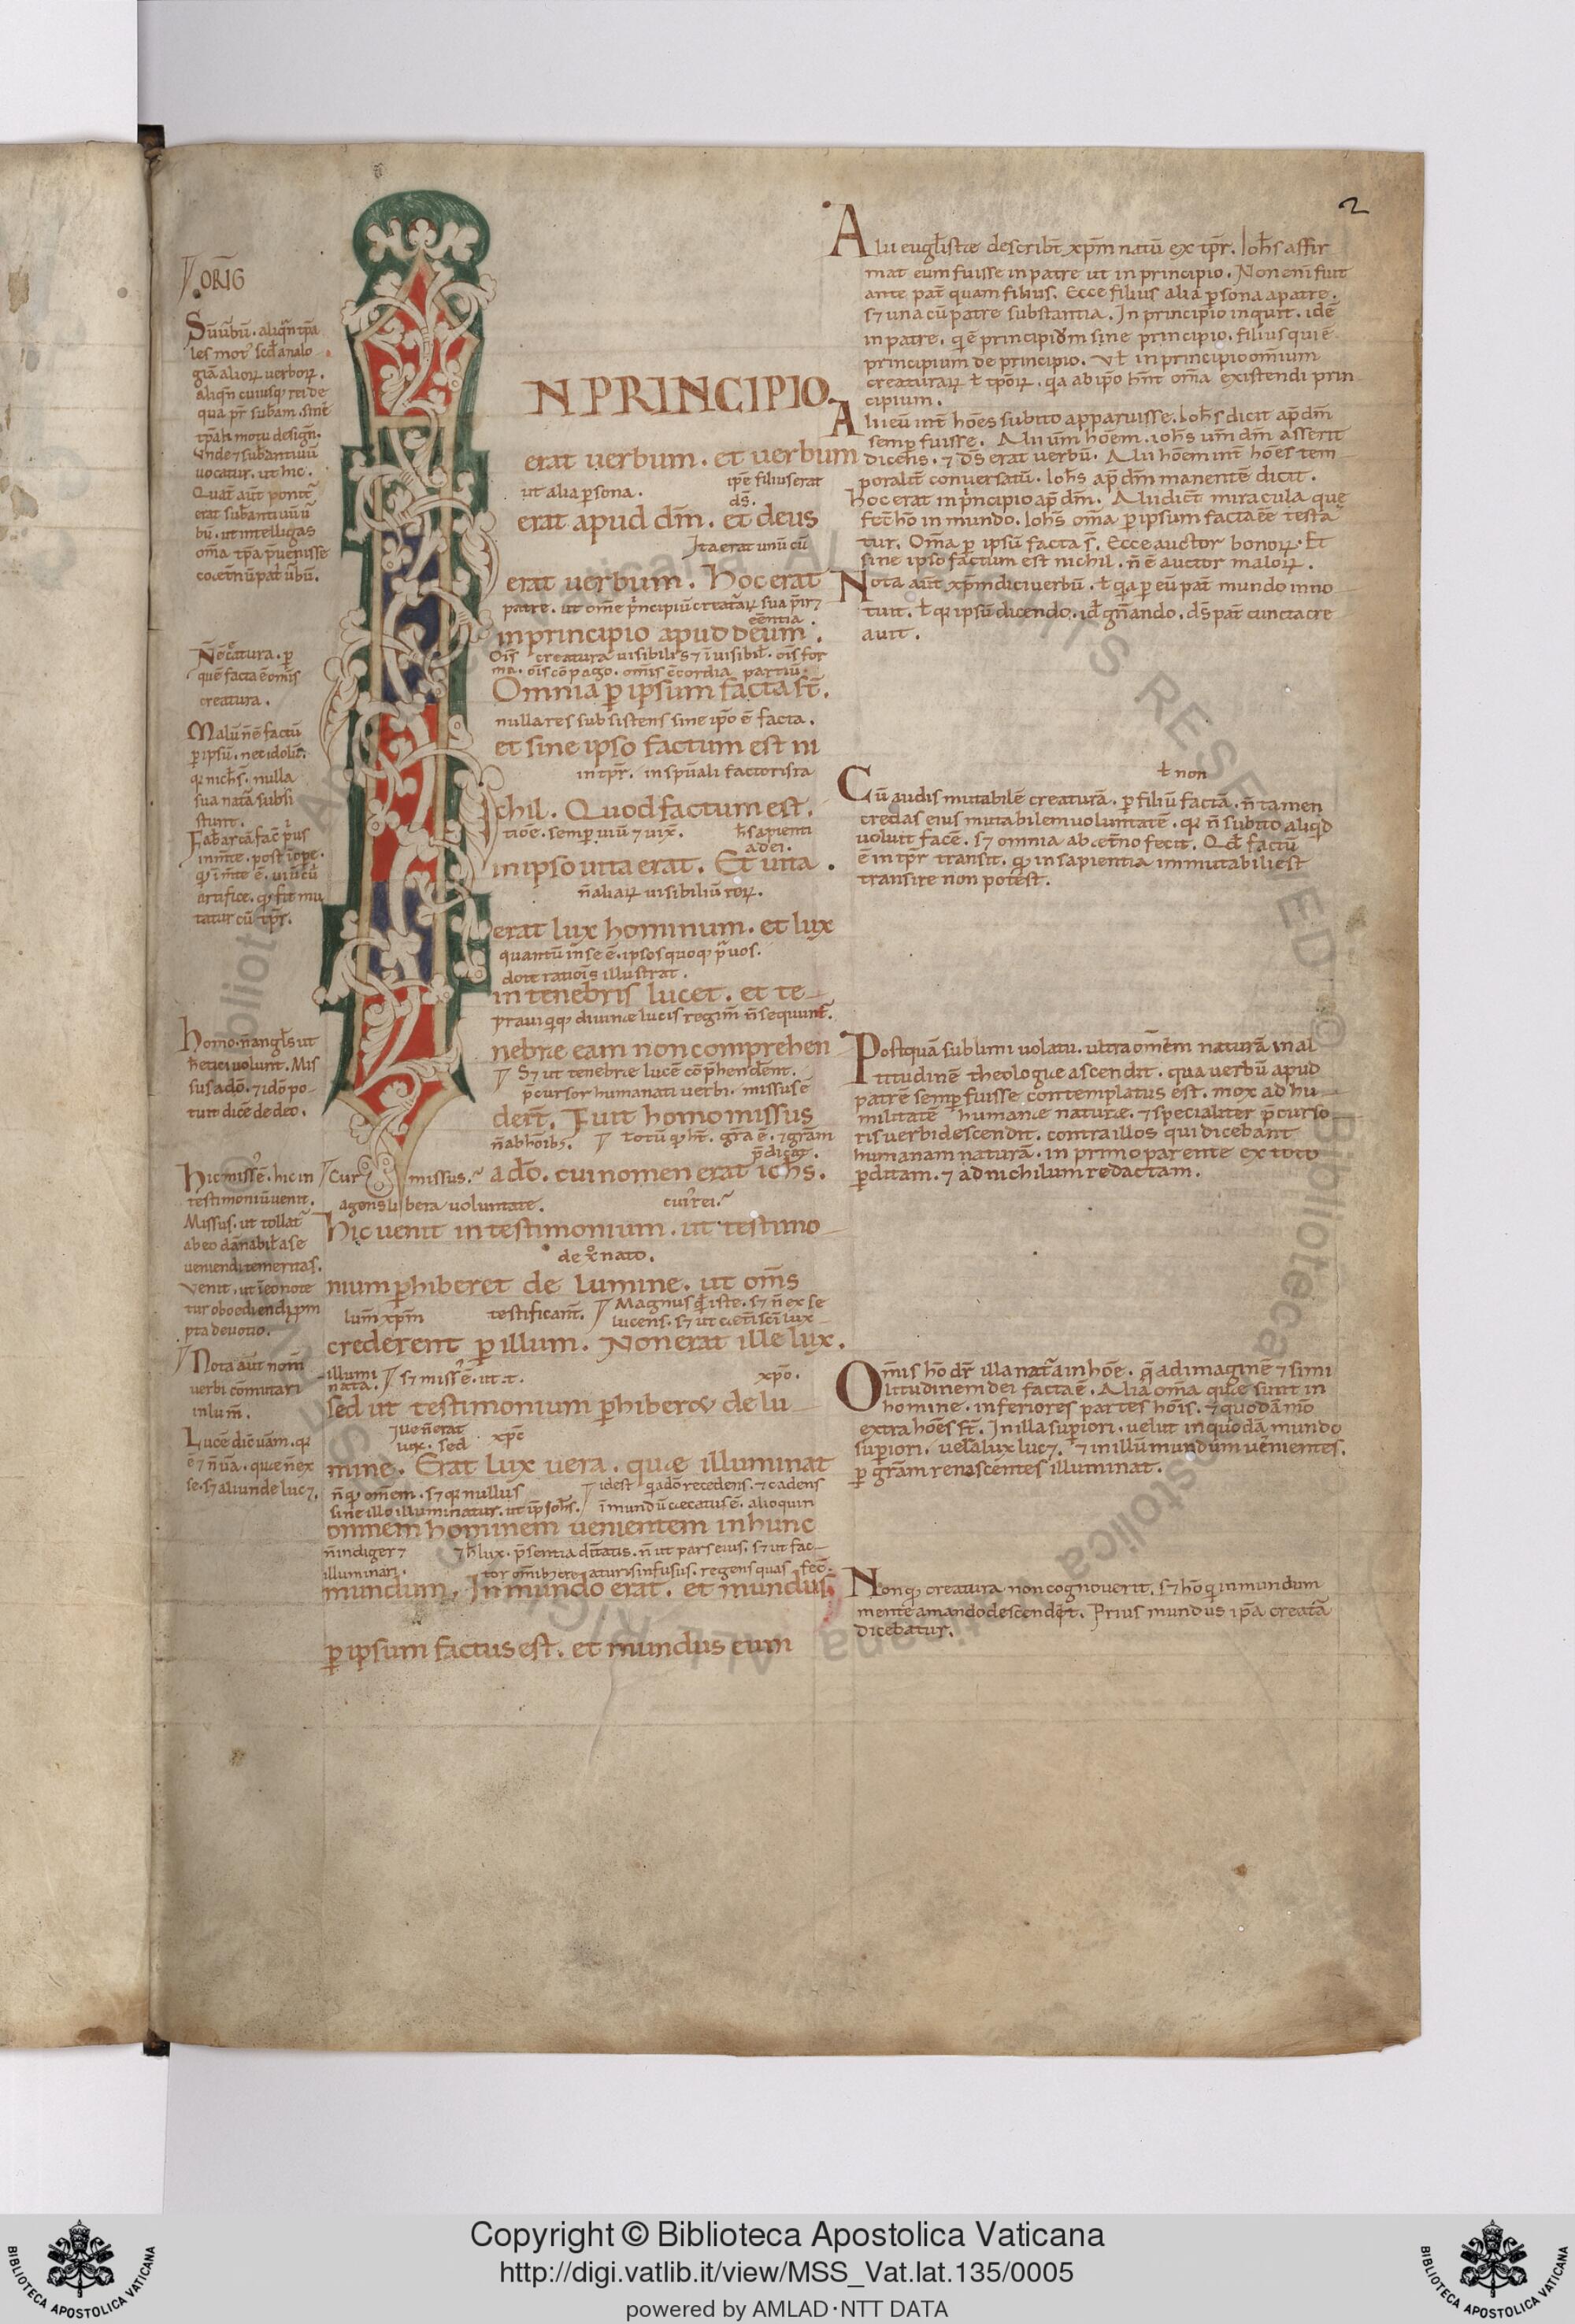 2
ORIḠ
Sūūbū. aliqn̄ tp̄a
les mot' scd̄ analo
giā alioꝝ uerboꝝ.
aliqn̄ cuiusq; rei de
qua pr̄ subam. sine
tp̄ali motu design̄.
Vnde ⁊ substantiuū
uocatur. ut hic.
om̄a tp̄a p̄uenisse
coet̄nū pat̄ ūbū.
N̄ē c̊atura. ꝑ
quē facta ē om̄is
creatura.
Malū n̄ ē factū
ꝑ ipsū. nec idolū.
qꝛ nich̄ s̄. nulla
sua natā subsi
stunt.
artifice. qđ fit mu
tatur cū tp̄r.
homo. n̄ angl̄s ut
h̄etici uolunt. Mis
sus a dō. ⁊ idō po
tuit dicē de deo.
hic miss' ē. hic in
testimoniū uenit.
Missus. ut tollat̄
ab eo dānabil̄ ase
ueniendi temeritas.
Venit. ut ī eo note
tur oboediendi ꝓm
pta deuotio.
Nota aūt nom̄
uerbi cōmutari
in lum̄.
Lucē dic̄ uām. qꝛ
ē ⁊ n̄ uā. quae n̄ ex
se. sꝫ aliunde lucꝫ.
N PRINCIPIO.
erat uerbum. et uerbum
ut alia ꝑsona. ip̄e filius erat
ds̄.
erat apud dm̄. et deus
Ita erat unū cū
erat uerbum. Hoc erat
patre. ut om̄e p̄ncipiū creat̄aꝝ sua p̄ir⁊
eēntia.
in principio apud deum.
Oīs creatura uisibilis ⁊ īuisibil̄. oīs for
ma. oīs cōpago. om̄is c̄cordia partiū.
Omnia ꝑ ipsum facta st̄.
nulla res subsistens sine ip̄o ē facta.
et sine ipso factum est ni
in tp̄r. in spūali factoris ra
chil. Quod factum est.
tiōe. semꝑ uiū ⁊ uix̄. h̄ sapienti
a dei.
in ipso uita erat. Et uita.
n̄ aliaꝝ uisibiliū reꝝ.
erat lux hominum. et lux
quantū in se ē. ipsos quoq; p̄uos.
dote ratiōis illustrat.
in tenebris lucet. et te
praui q̄iq; diuinae lucis regim̄ n̄ sequunt̄.
nebrae eam non comprehen
Sꝫ ut tenebrae lucē cōp̄henderīt.
p̄cursor humanati uerbi. missus ē
derīt. Fuit homo missus
n̄ ab hōibꝫ. totū qđ h̄t. gr̄a ē. ⁊ gr̄am
p̄dicat.
Cur missus. a dō. cui nomen erat ioh̄s.
agens libera uoluntate. cui' rei.
Hic uenit in testimonium. ut testimo
de x̊ nato.
nium ꝑhiberet de lumine. ut om̄s
lum̄ xp̄m testificant̄. Magnus q̄d iste. sꝫ n̄ ex se
lucens. sꝫ ut ceteri sci lux
crederent ꝑ illum. Non erat ille lux.
illumi
nata. sꝫ miss' ē. ut .t. xp̄o.
sed ut testimonium ꝑhiberet de lu
lux. sed xp̄c
mine. Erat lux uera. quae illuminat
n̄ qđ om̄em. sꝫ qꝛ nullus idest q̄ a dō recedens. ⁊ cadens
sine illo illuminatur. ut ip̄e Ioh̄s. ī mundū caecatus ē. alioquin
omnem hominem uenientem in hunc
n̄ indiger⁊ ⁊ h̄ lux. p̄sentia diuitatis. n̄ ut pars eius. sꝫ ut fac
illuminari. tor om̄ibꝫ creaturis infusus. regens quas fec̄.
mundum. In mundo erat. et mundus
ꝑ ipsum factus est. et mundus eum
Alii eugl̄istae describt̄ xp̄m natū ex tp̄r. Ioh̄s affir
mat eum fuisse in patre ut in principio. Non eni fuit
ante pat̄ quam filius. Ecce filius alia ꝑsona a patre.
sꝫ una cū patre substantia. In principio inquit. idē
in patre. q̄ ē principiūm sine principio. filius qui ē
principium de principio. Vł in principio omnium
creaturaꝝ ł tp̄oꝝ. qa ab ip̄o hn̄t om̄a existendi prin
cipium.
Alii eū int̄ hōes subito apparuisse. Ioh̄s dicit ap̄ dm̄
semꝑ fuisse. Alii uerūm hōem. ioh̄s uerūm dm̄ asserit
dicens. ⁊ ds̄ erat uerbū. Alii hōem int̄ hōes tem
poralit̄ conuersatū. Ioh̄s ap̄ dm̄ manentē dicit.
hoc erat in p̄ncipio ap̄ dm̄. Alii dict̄ miracula quę
fec̄ hō in mundo. Ioh̄s om̄a ꝑ ipsum facta eē testa
tur. Om̄a ꝑ ipsū facta s̄. Ecce auctor bonoꝝ. Et
sine ipso factum est nichil. n̄ ē auctor maloꝝ.
Nota aūt xp̄m dici uerbū. ł qa ꝑ eū pat̄ mundo inno
tuit. ł qꝛ ipsū dicendo. id̄ gn̄ando. ds̄ pat̄ cuncta cre
auit.
ł non
Cū audis mutabilē creaturā. ꝑ filiū factā. n̄ tamen
credas eius mutabilem uoluntatē. qꝛ n̄ subito aliqd
uoluit facē. sꝫ omnia ab et̄no fecit. Qd̄ factū
ē in tp̄r transit. qđ in sapientia immutabili est
transire non potest.
Postquā sublimi uolatu. ultra om̄em naturā in al
titudinē theologiae ascendit. qua uerbū apud
patrē semꝑ fuisse contemplatus est. mox ad hu
militatē humanae naturae. ⁊ specialiter p̄curso
ris uerbi descendit. contra illos qui dicebant
humanam naturā. in primo parente ex toto
ꝑditam. ⁊ ad nichilum redactam.
Om̄is hō dr̄ illa nat̄a in hōe. q̄ ad imaginē ⁊ simi
litudinem dei facta ē. Alia om̄a quae sunt in
homine. inferiores partes hōis. ⁊ quodā mō
extra hōes st̄. In illa suꝑiori. uelut in quodā mundo
suꝑiori. uera lux lucꝫ. ⁊ in illū mundum uenientes.
ꝑ gr̄am renascentes illuminat.
Non qđ creatura non cognouerit. sꝫ hō qi in mundum
mente amando descendert. Prius mundus ip̄a creat̄a
dicebatur.
Copyright © Biblioteca Apostolica Vaticana
http://digi.vatlib.it/view/MSS_Vat.lat.135/0005
powered by AMLAD·NTT DATA
BIBLIOTECA APOSTOLICA VATICANA
BIBLIOTECA APOSTOLICA VATICANA